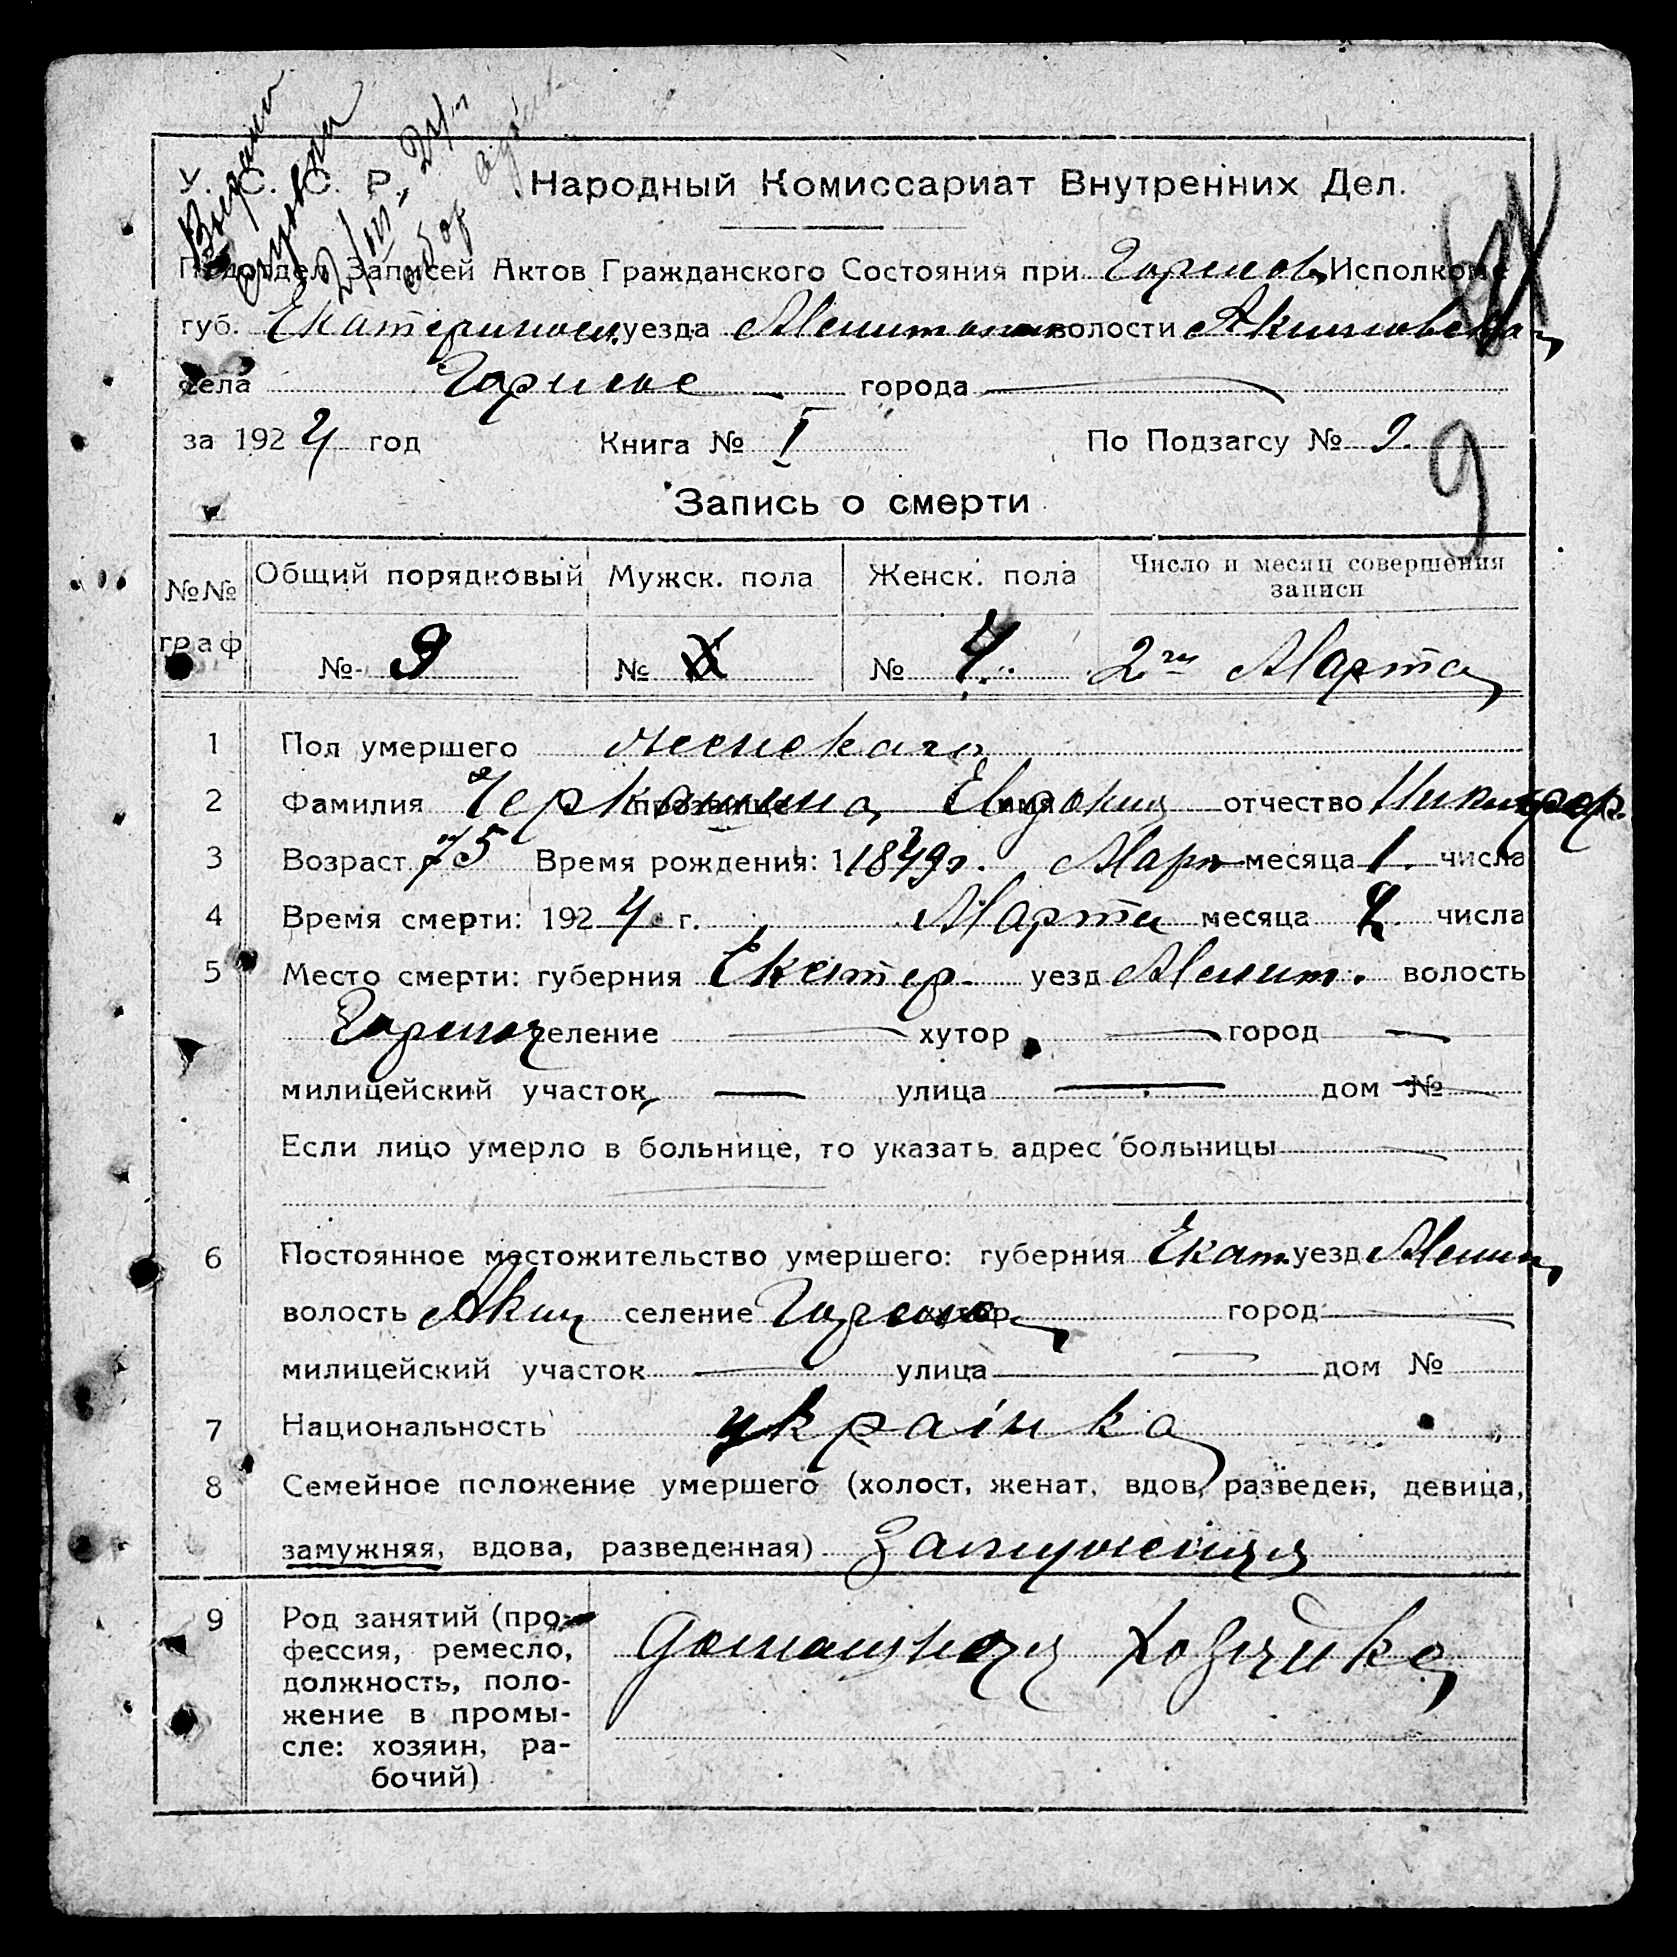 У. С. С. Р. Народный Комиссариат Внутренних Дел.
Подотдел Записей Актов Гражданского Состояния при Исполкоме
губ. Екатеринослав. уезда волости Акимовская
села города
за 1924 год Книга № I По Подзагсу № 9.
9
Запись о смерти
№№ граф Общий порядковый Мужск. пола Женск. пола Число и месяц совершения записи
№ 9 № № 4. 2го Марта
1 Пол умершего женскаго
2 Фамилия прозвище имя Евдокия отчество Никифор.
3 Возраст 75 Время рождения: 1 1849г. Март месяца 1. числа
4 Время смерти: 1924 г. Марта месяца 2 числа
5 Место смерти: губерния Екатер. уезд Мелит. волость
селение хутор город
милицейский участок улица дом №
Если лицо умерло в больнице, то указать адрес больницы
6 Постоянное местожительство умершего: губерния Екат. уезд Мелит
волость Аким селение хутор город
милицейский участок улица дом №
7 Национальность украінка
8 Семейное положение умершего (холост, женат, вдов, разведен, девица,
замужняя, вдова, разведенная) Замужняя
9 Род занятий (про-
фессия, ремесло,
должность, поло-
жение в промы-
сле: хозяин, ра-
бочий)
домашняя хозяйка